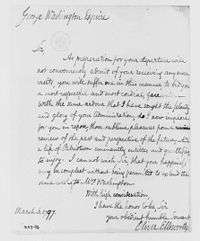 George Washington Esquire
Sir,
As preparation for your departure will
not conveniently admit of your receiving any more
visits, you will suffer me in this manner to bid you
a most respectful and most cordial farewell
with the same ardour that I have sought the felicity
and glory of your Administration, do I now implore
for you in repose, those sublime pleasures
of the past and perspective of the future, which
a life of Patriotism eminently entitles to
enjoy. I cannot wish Sir, that your happiness
may be compleat without praying to extend the
same wish to Mrs Washington.
With high consideration,
I have the honor to be, Sir,
your obedient humble Servant
Oliver Ellsworth
March 97.